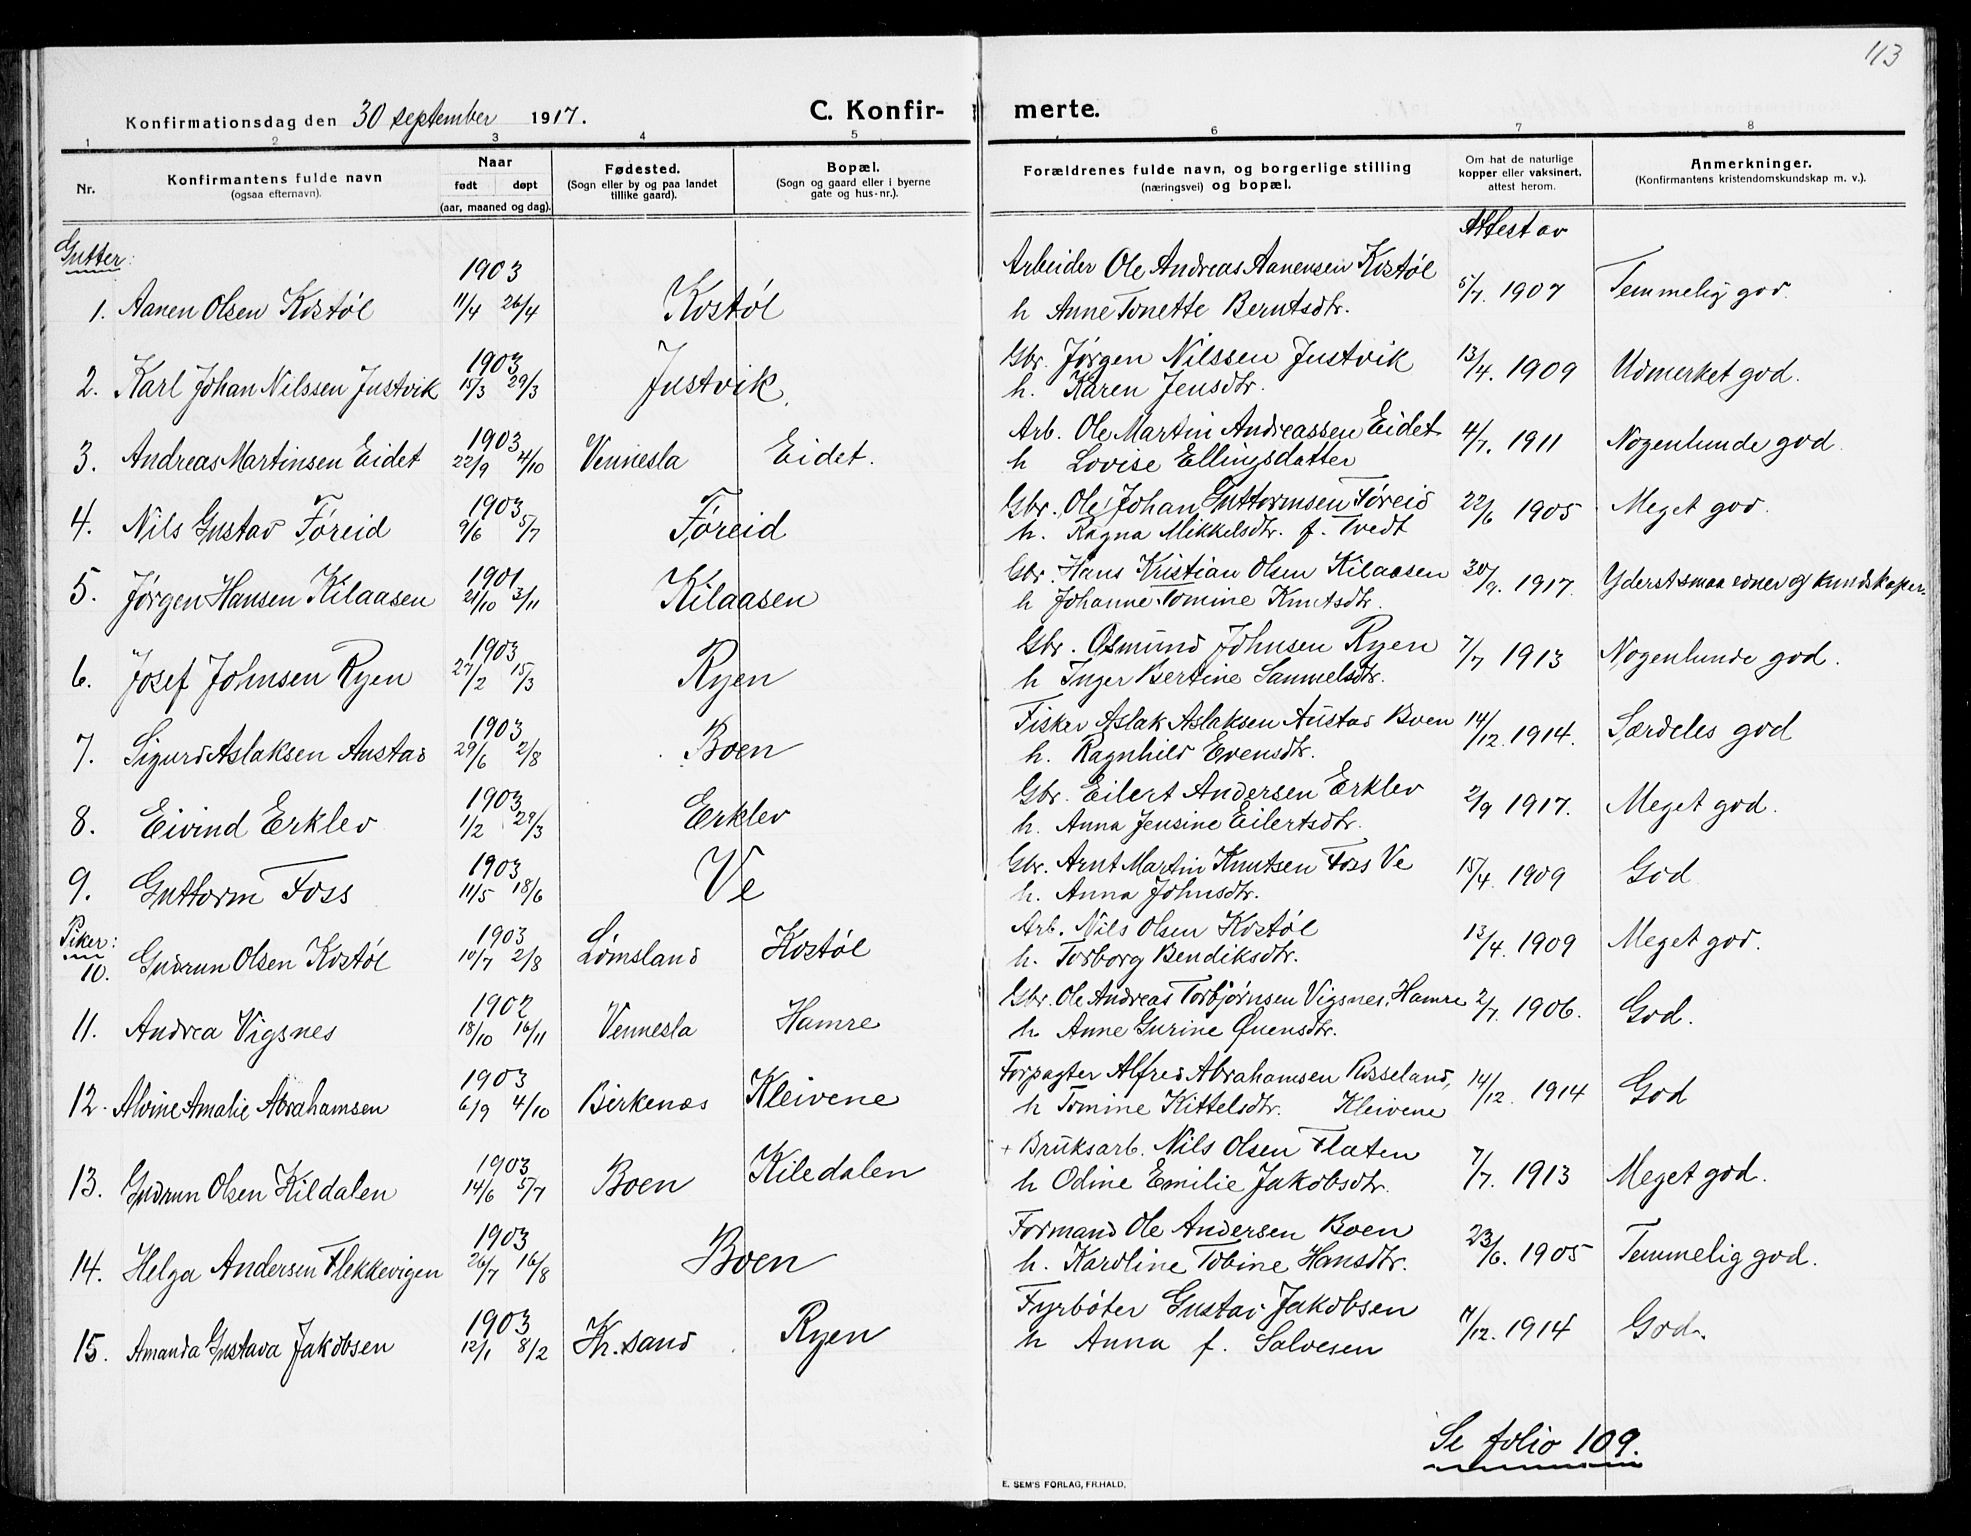 113
Konfirmationsdag den 30 september 1917.
C. Konfirmerte.
1 2 3 4 5 6 7 8
Nr.
Konfirmantens fulde navn
(ogsaa efternavn).
Naar
født døpt
(aar, maaned og dag).
Fødested.
(Sogn eller by og paa landet
tillike gaard).
Bopæl.
(Sogn og gaard eller i byerne
gate og hus-nr.).
Forældrenes fulde navn, og borgerlige stilling
(næringsvei) og bopæl.
Om hat de naturlige
kopper eller vaksinert,
attest herom.
Anmerkninger.
(Konfirmantens kristendomskundskap m. v.).
Attest av
Gutter:
1. Aanen Olsen Kostøl 1903 11/4 26/4 Kostøl Arbeider Ole Andreas Aanensen Kostøl 5/7. 1907 Temmelig god.
h Anne Tonette Berntsdtr.
2. Karl Johan Nilssen Justvik 1903 15/3 29/3 Justvik Gbr. Jørgen Nilssen Justvik 13/4. 1909 Udmerket god.
h. Karen Jensdtr.
3. Andreas Martinsen Eidet 1903 22/9 4/10 Vennesla Eidet. Arb. Ole Martin Andreassen Eidet 4/7. 1911 Nogenlunde god
h Lovise Ellingsdatter
4. Nils Gustav Føreid 1903 9/6 5/7 Føreid Gbr. Ole Johan Guttormsen Føreid 22/6 1905 Meget god.
h. Ragna Mikkelsdtr. f. Tvedt
5. Jørgen Hansen Kilaasen 1901 21/10 3/11 Kilaasen Gbr. Hans Kristian Olsen Kilaasen 30/9. 1917. Yderst smaa evner og kundskaper.
h Johanne Tomine Knutsdtr.
6. Josef Johnsen Ryen 1903 27/2 15/3 Ryen Gbr. Osmund Johnsen Ryen 7/7 1913 Nogenlunde god.
h Inger Bertine Samuelsdtr.
7. Sigurd Aslaksen Austad 1903 29/6 2/8 Boen Fisker Aslak Aslaksen Austad Boen 14/12. 1914. Særdeles god
h. Ragnhild Evensdtr.
8. Eivind Erklev 1903 1/2 29/3 Erklev Gbr. Eilert Andersen Erklev 2/9 1917. Meget god.
h. Anna Jensine Eilertsdtr.
9. Guttorm Foss 1903 11/5 18/6 Ve Gbr. Arnt Martin Knutsen Foss Ve 15/4 1909 God
h. Anna Johnsdtr.
Piker:
10. Gudrun Olsen Kostøl 1903 10/7 2/8 Lømsland Kostøl Arb. Nils Olsen Kostøl 13/4. 1909 Meget god.
h. Torborg Bendiksdtr.
11. Andrea Vigsnes 1902 18/10 16/11 Vennesla Hamre Gbr. Ole Andreas Torbjørnsen Vigsnes, Hamre 2/7 1906. God.
h Anne Gurine Øuensdtr.
12. Alvine Amalie Abrahamsen 1903 6/9 4/10 Birkenæs Kleivene Forpagter Alfred Abrahamsen Risseland, 14/12. 1914 God
h Tomine Kittelsdtr. Kleivene
13. Gudrun Olsen Kildalen 1903 14/6 5/7 Boen Kiledalen + Bruksarb. Nils Olsen Flaten 7/7. 1913 Meget god.
h Odine Emilie Jakobsdtr.
14. Helga Andersen Flekkevigen 1903 26/7 16/8 Boen Formand Ole Andersen Boen 23/6. 1905 Temmelig god.
h. Karoline Tobine Hansdtr.
15. Amanda Gustava Jakobsen 1903 12/1 8/2 Kr.sand Ryen Fyrbøter Gustav Jakobsen /12. 1914 God.
h Anna f. Salvesen
Se folio 109.
E. SEM'S FORLAG, FR.HALD.